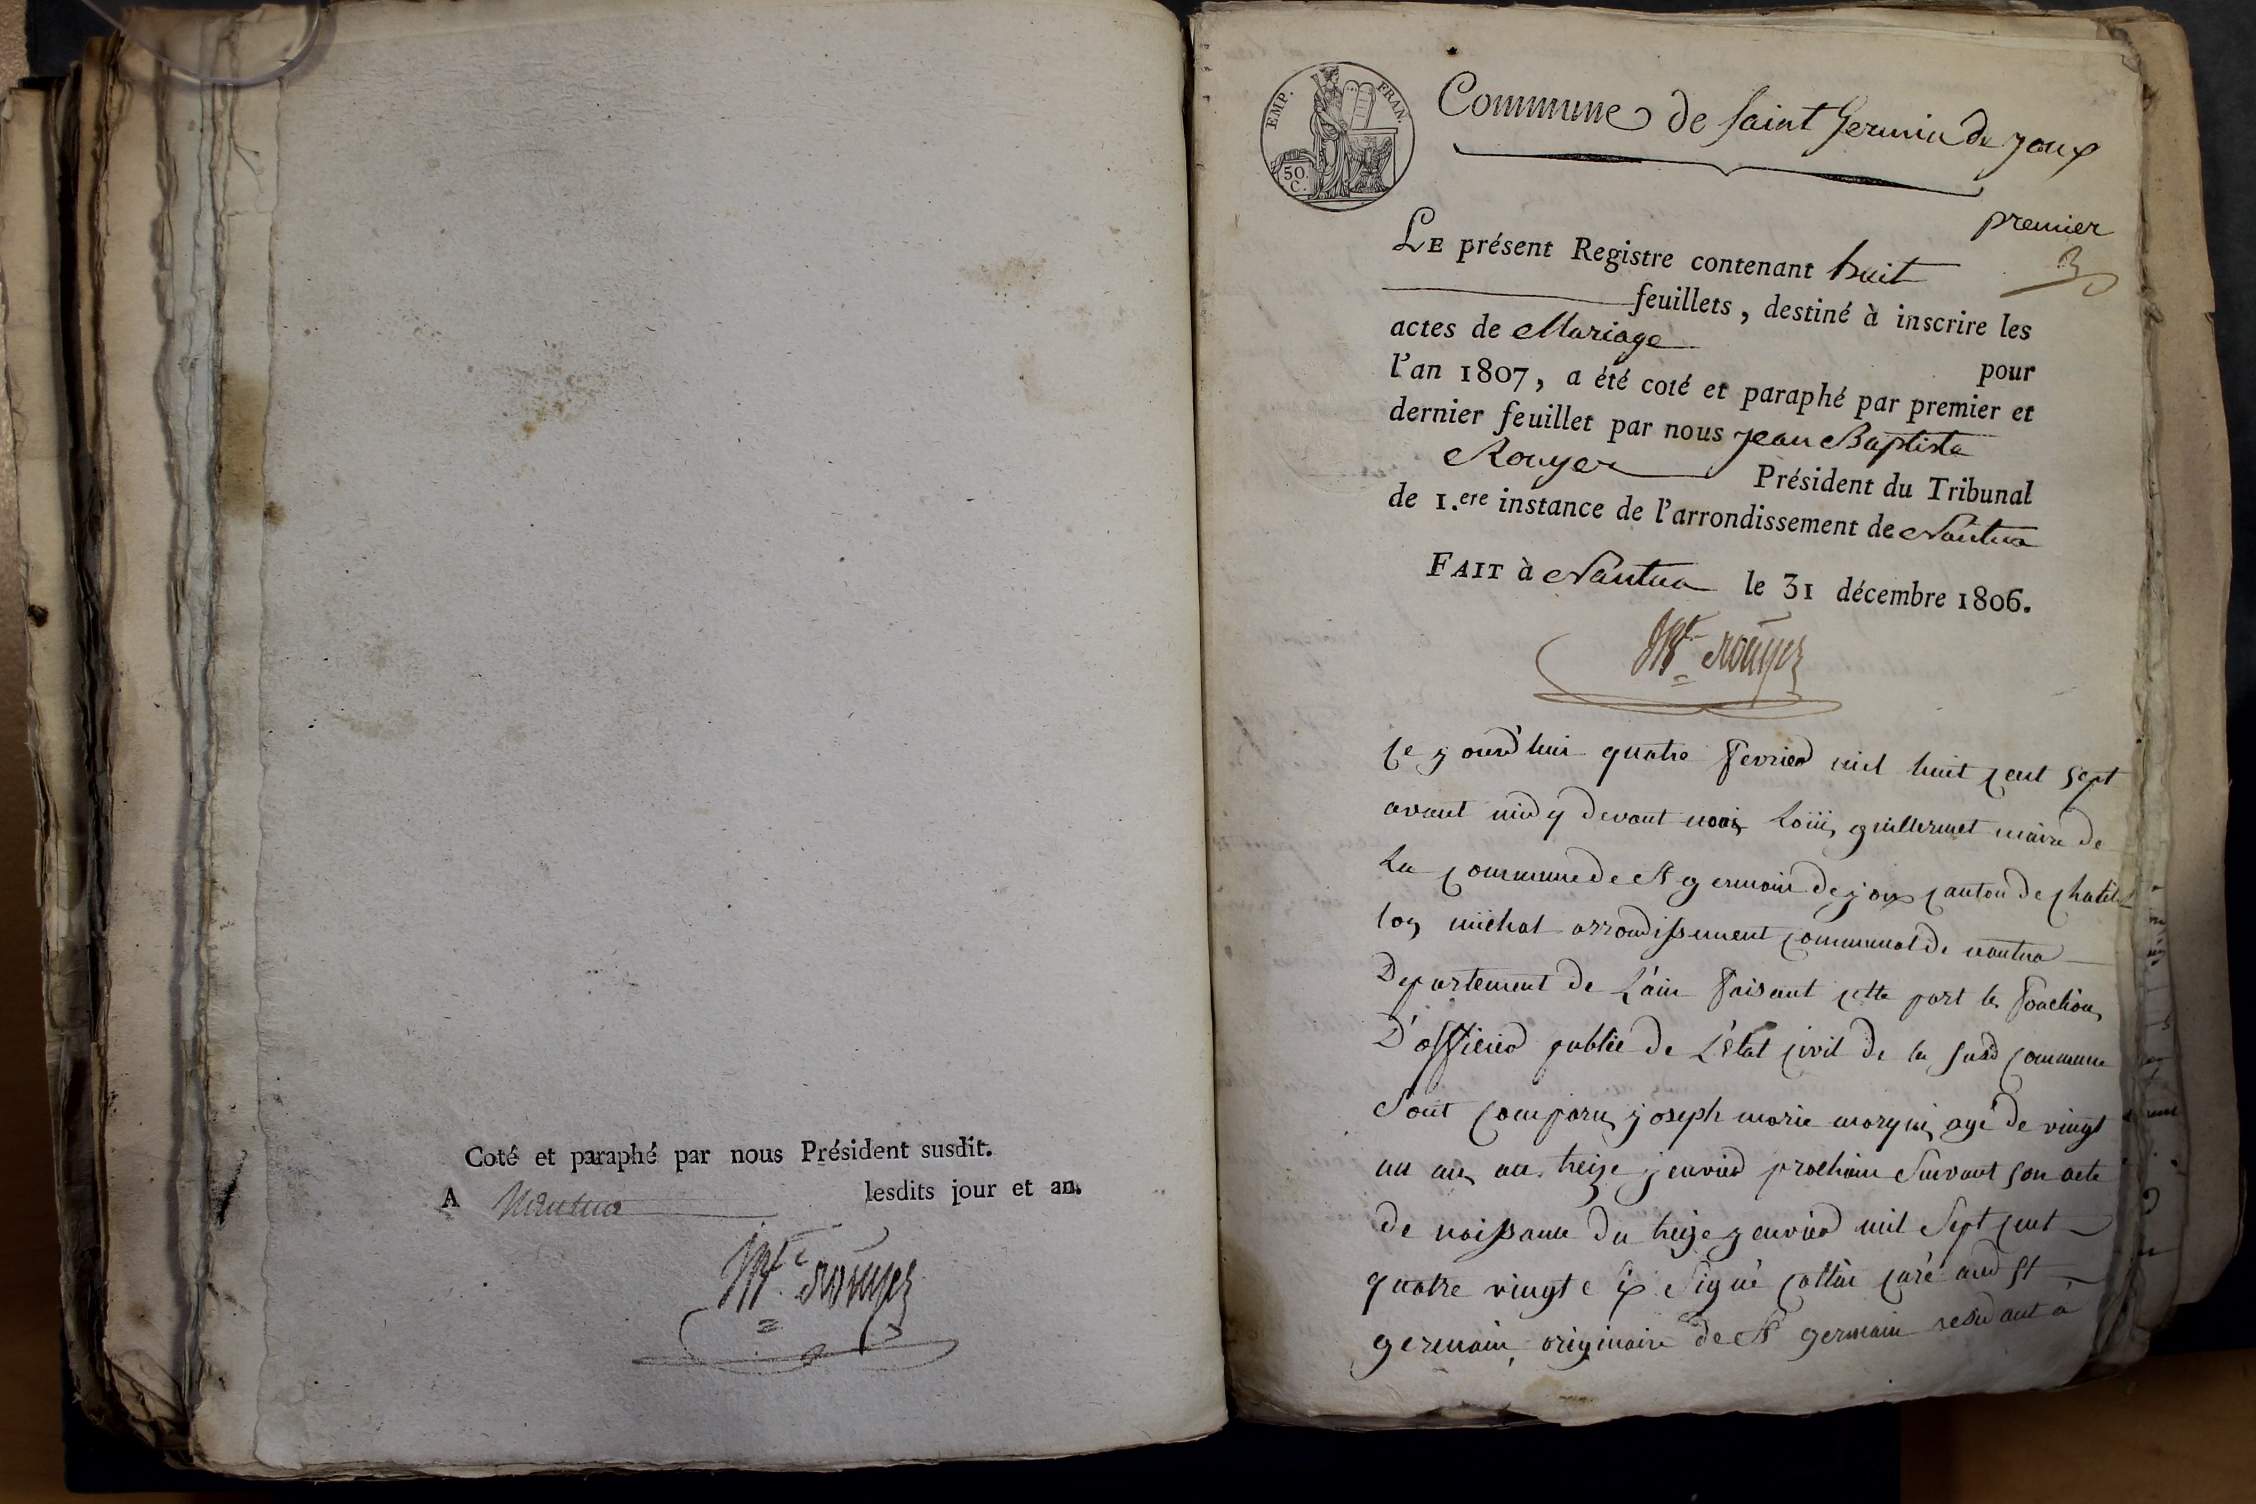 Coté et paraphé par nous Président susdit.
A Nantua lesdits jour et an.
Jn Bte Rouyer
EMP. FRAN.
50.
C.
Commune de Saint Germain de joux
premier
LE présent Registre contenant huit
feuillets, destiné à inscrire les
actes de Mariage pour
l'an 1807, a été coté et paraphé par premier et
dernier feuillet par nous jean Baptiste
Rouyer Président du Tribunal
de 1.ere instance de l'arrondissement de Nantua
FAIT à Nantua le 31 décembre 1806.
Jn Bte Rouyer
Cejourd'hui quatre fevrier mil huit cent sept
avant midy devant nous Louis guillermet maire de
La commune de St germain de joux canton de chatil
lon michal arrondissement communal de nantua
Departement de L'ain faisant cette part les fonctions
D'officier public de L'état civil de la susd commune
Sont comparu joseph marie agé de vingt
un ans au treize janvier prochain Suivant son acte
de naissance du treize janvier mil Sept cent
quatre vingt Six Signé curé aud St
germain, originaire de St germain residant à